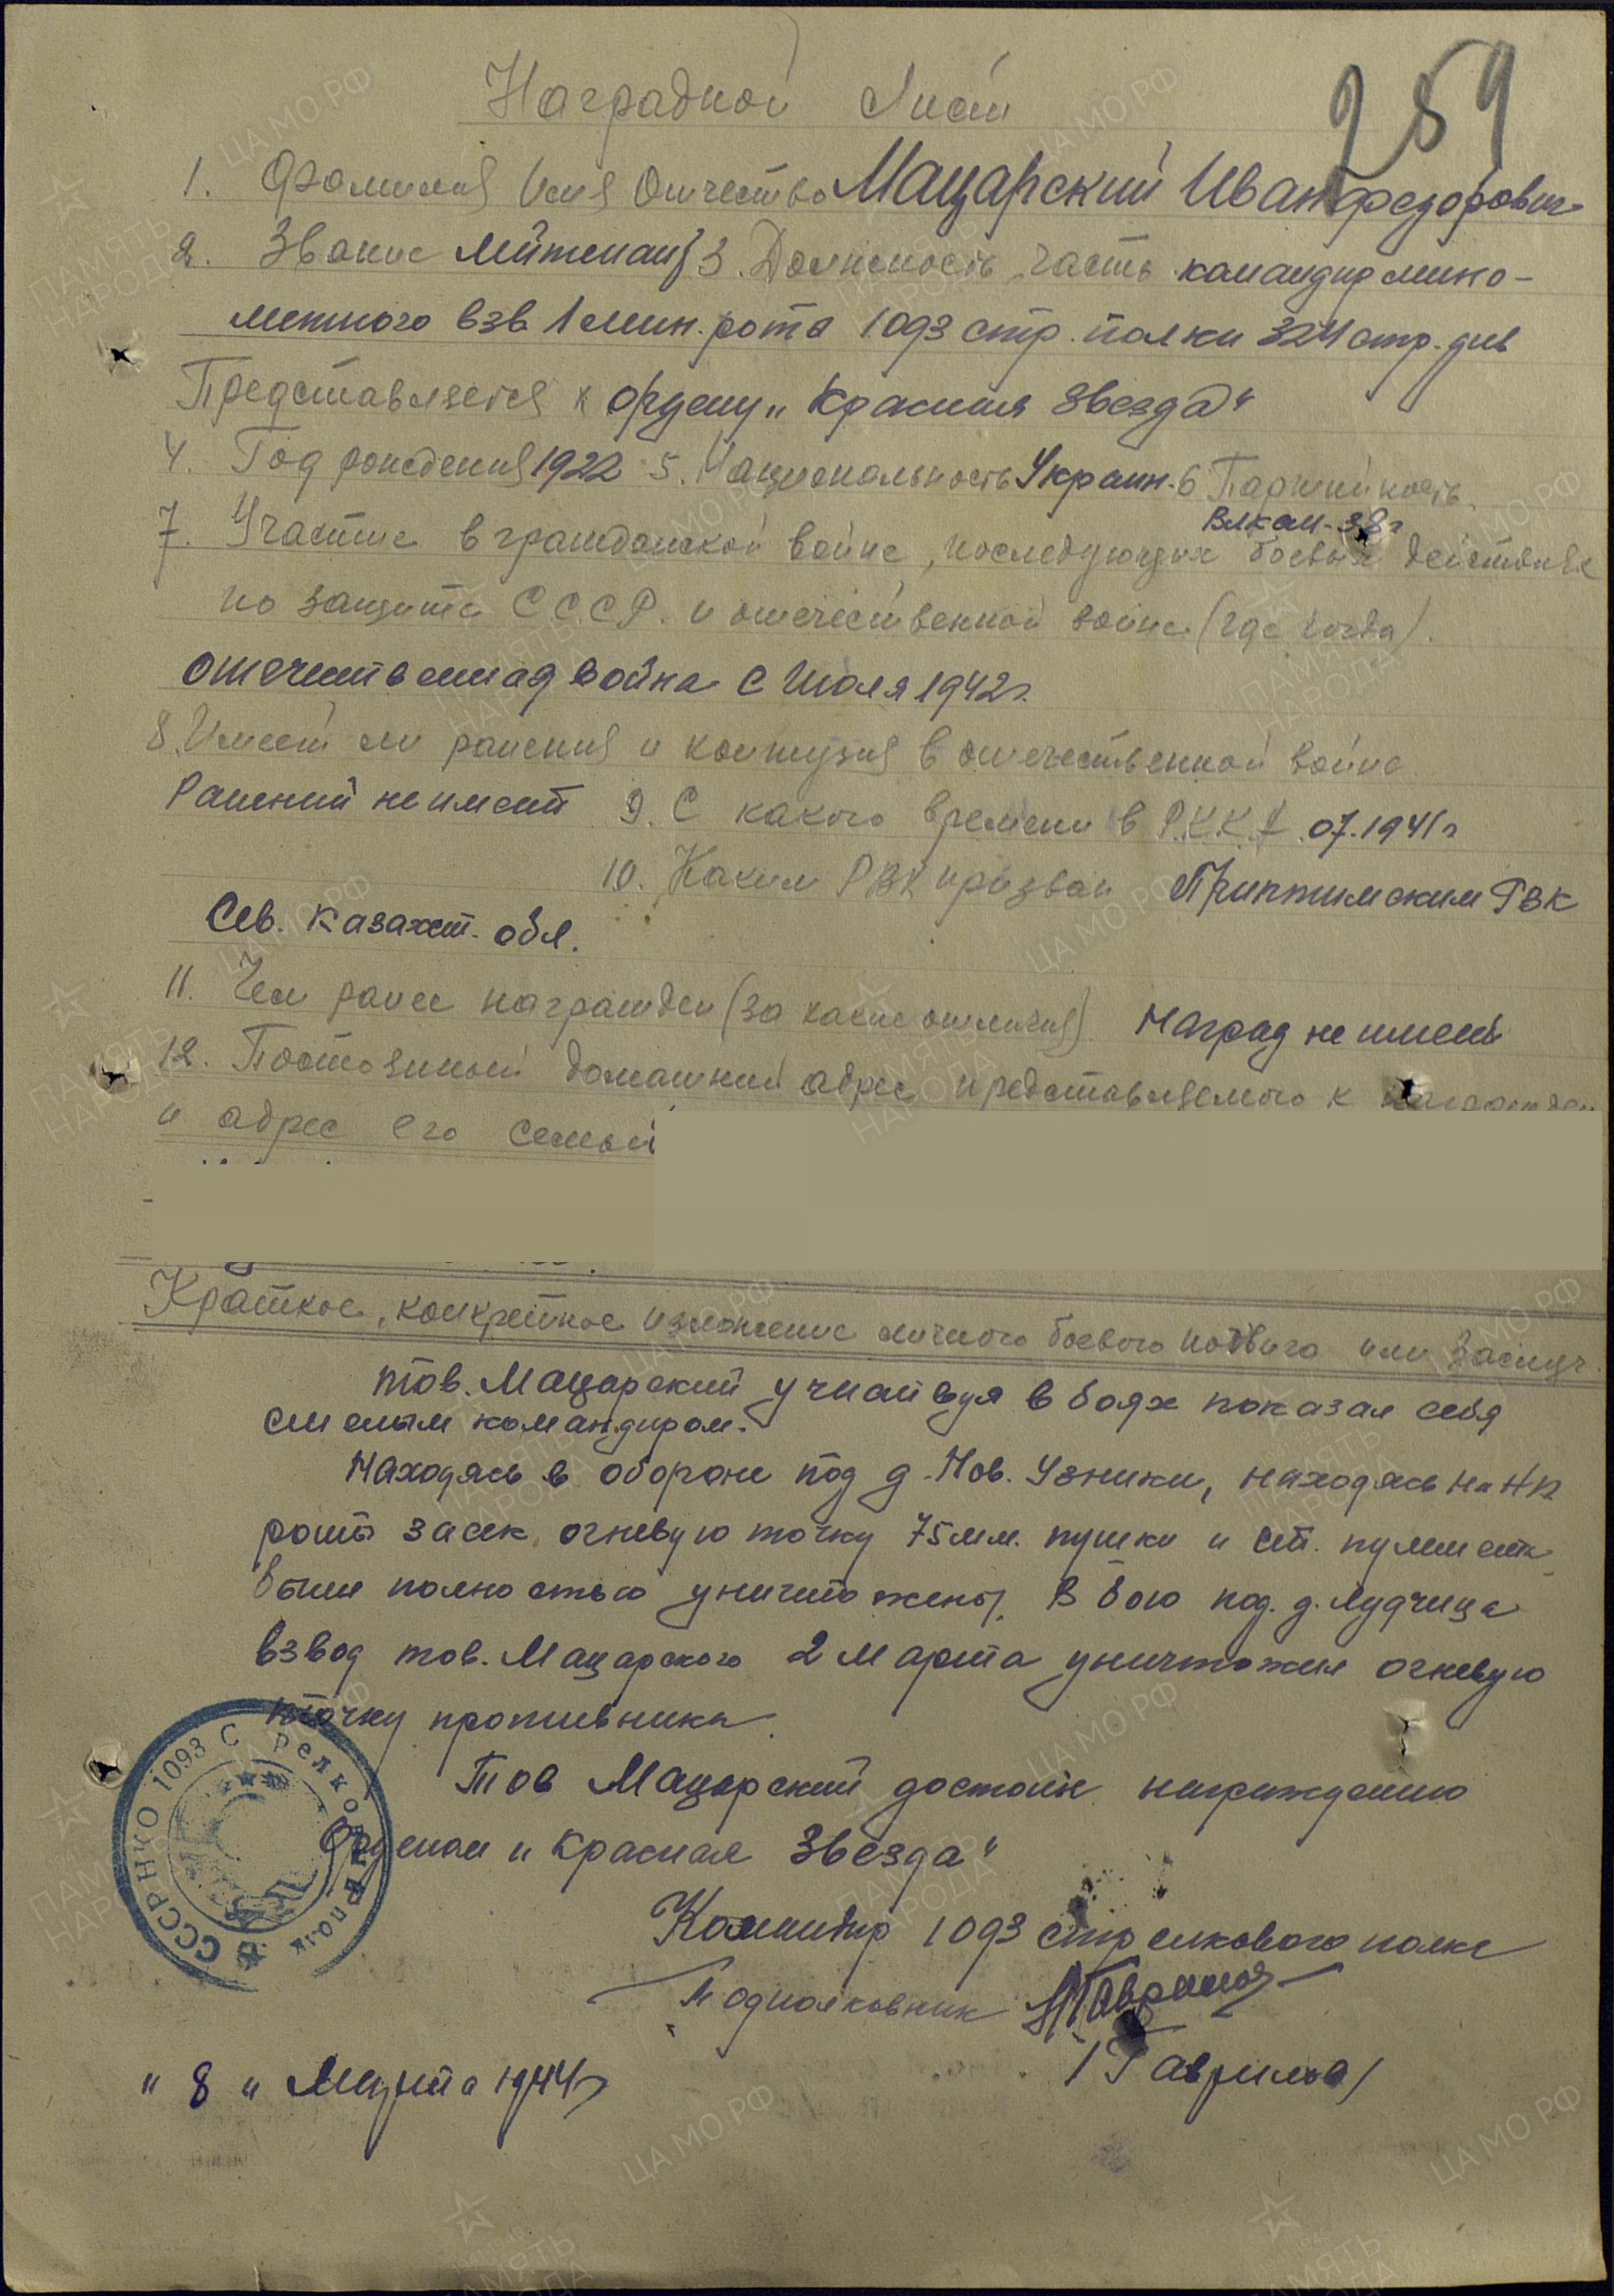 259
Наградной Лист
1. Фамилия Имя Отчество Мацарский Иван Федорович
2. Звание лейтенант 3. Должность, часть командир мино-
метного взв. 1 мин. рота 1093 стр. полка 324 стр. див
Представляется к ордену „Красная Звезда“
4. Год рождения 1922 5. Национальность Украин. 6 Партийность
ВЛКСМ - 38 г
7. Участие в гражданской войне, последующих боевых действиях
по защите С.С.С.Р. и отечественной войне (где когда).
Отечественная война с Июля 1942 г.
8. Имеет ли ранения и контузия в отечественной войне.
Ранений не имеет 9. С какого времени в Р.К.К.А 07.1941 г
10. Каким РВК призван РВК
Сев. Казахст. обл.
11. Чем ранее награжден (за какие отличия) Наград не имеет
12. Постоянный домашний адрес представляемого к
и адрес его семьи
Краткое, конкретное изложение личного боевого подвига или заслуг.
тов. Мацарский участвуя в боях показал себя
смелым командиром.
Находясь в обороне под д. Нов. Узники, находясь на НП
роты засек огневую точку 75 мм. пушки и ст. пулемет
были полностью уничтожены. В бою под. д. Лудчица
взвод тов. Мацарского 2 марта уничтожил огневую
точку противника.
Тов Мацарский достоин награждению
Орденом „Красная Звезда“
Командир 1093 стрелкового полка
Подполковник
/Гаврилов/
„8“ Марта 1944 г
СССР НКО 1093 Стрелковый полк